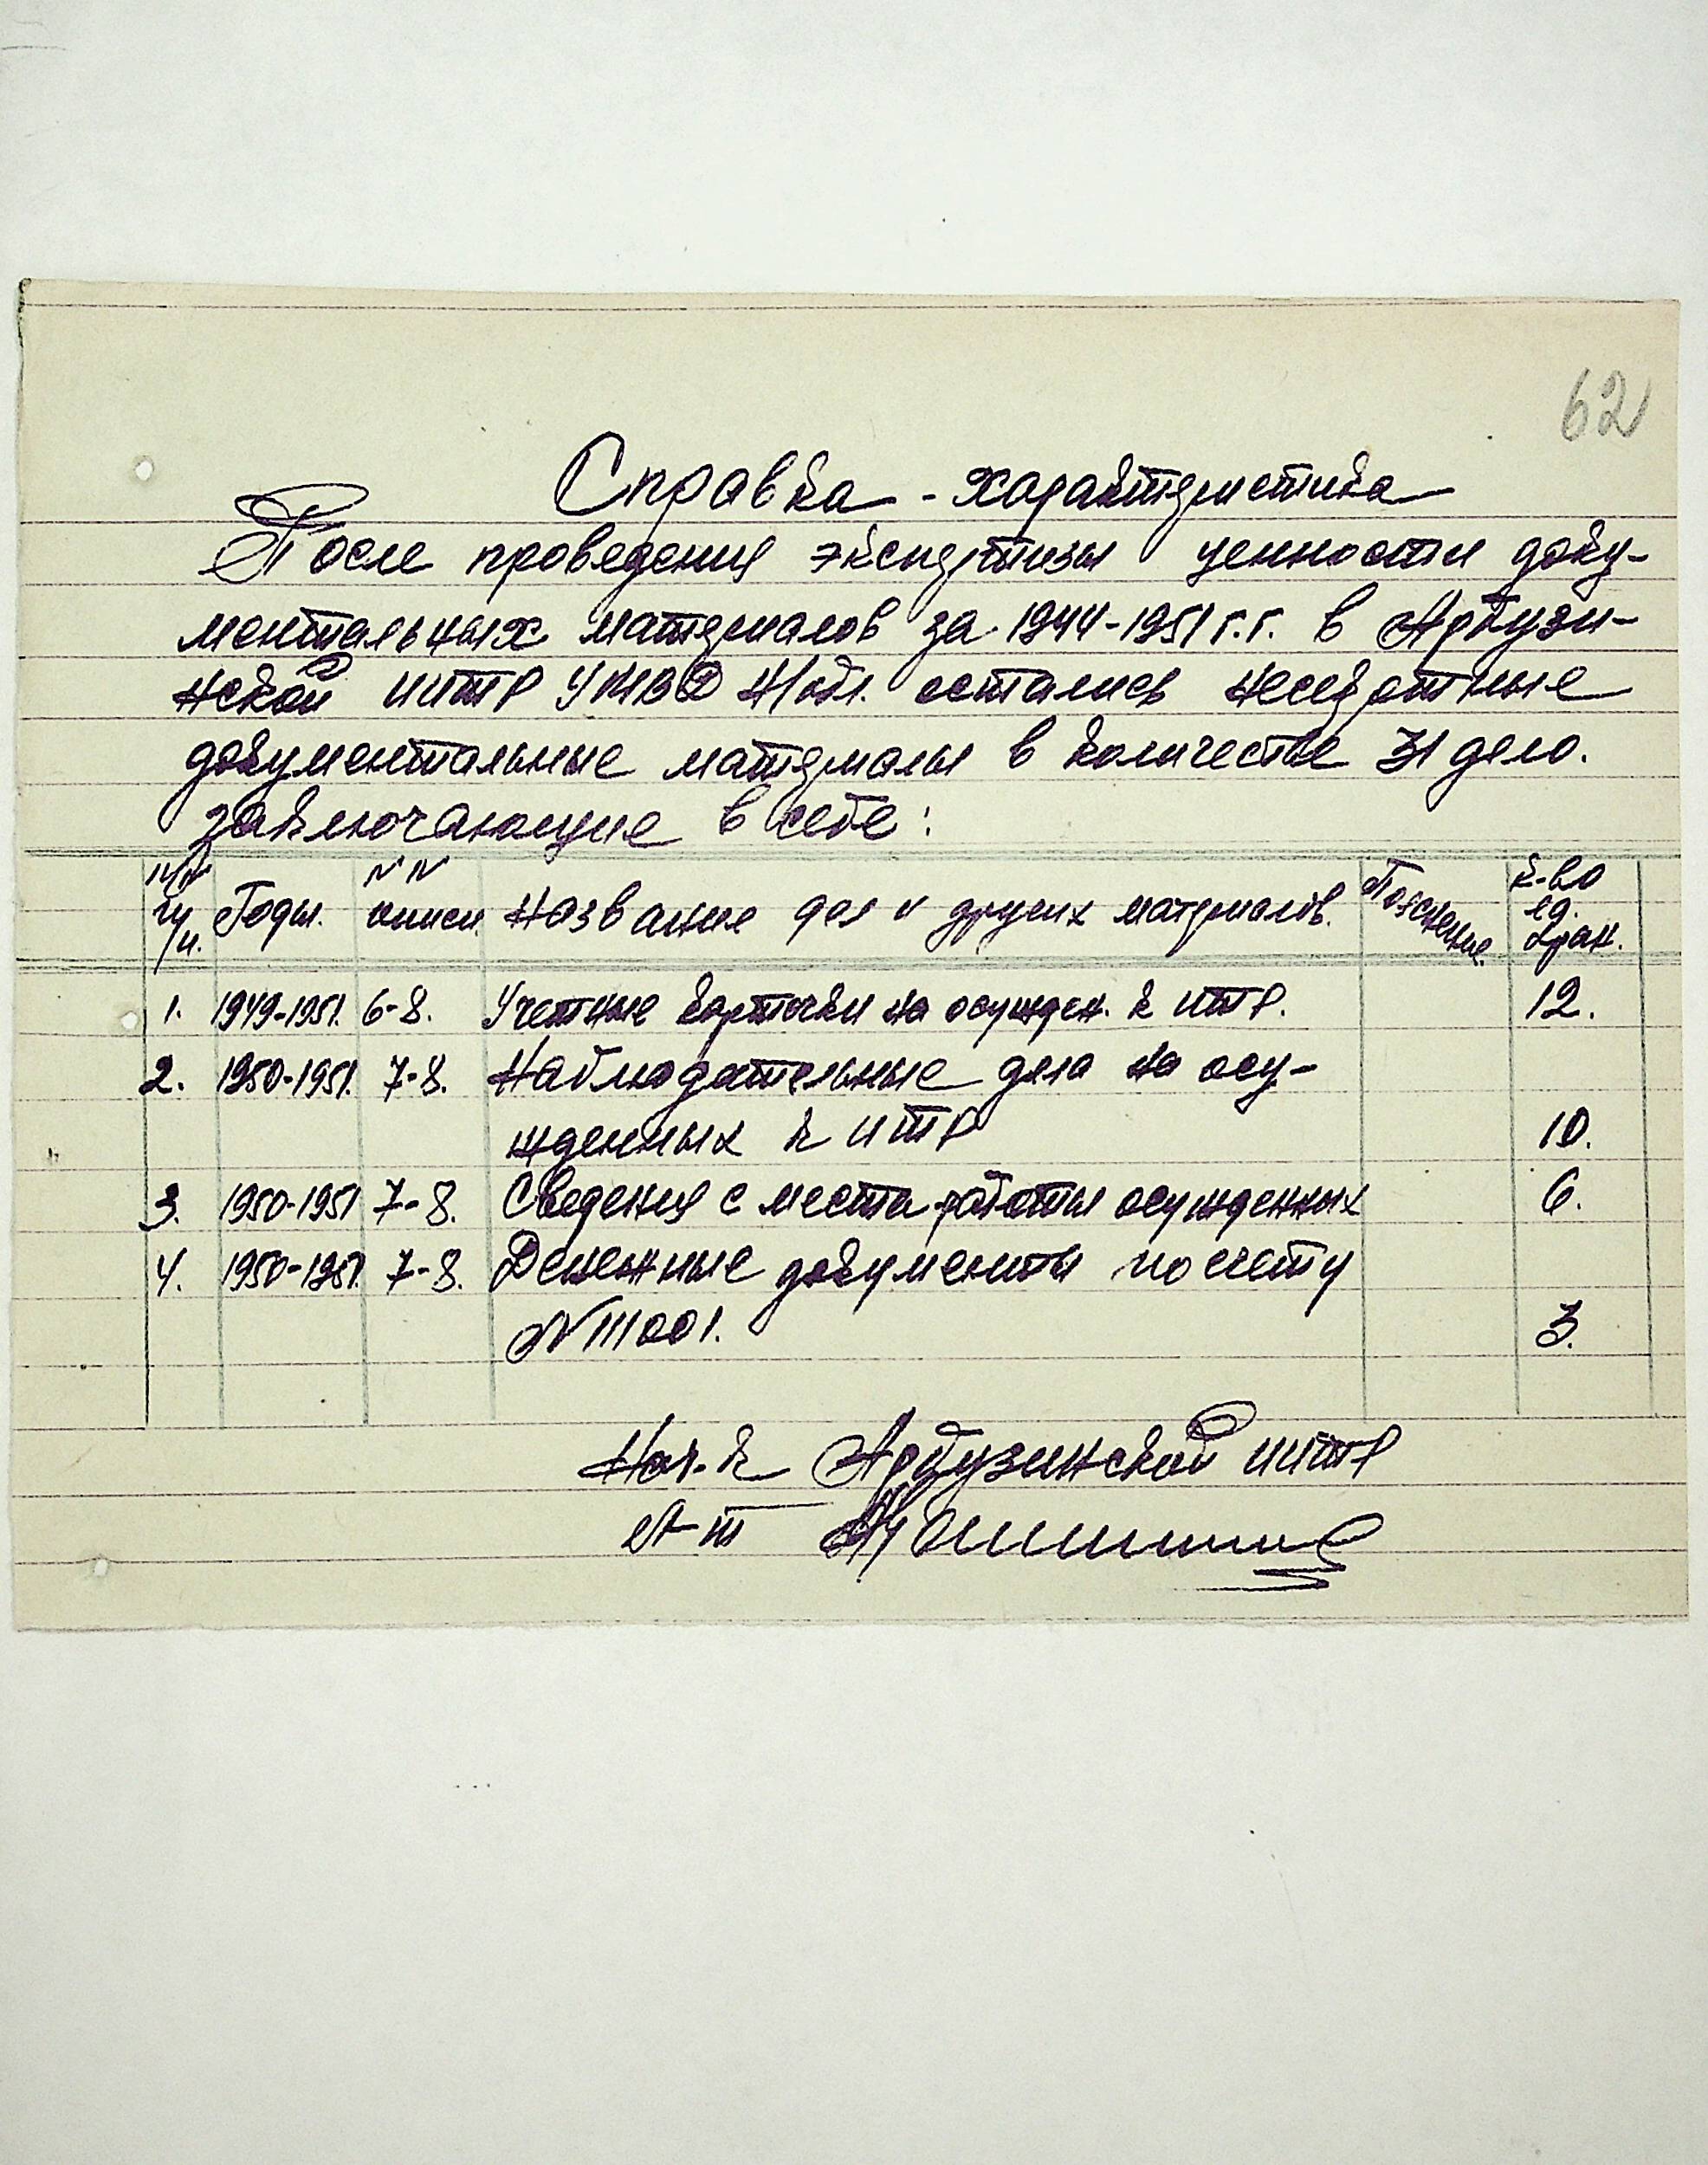 62
Справка - характеристика
После проведения экспертизы ценности доку-
ментальных материалов за 1944-1951 г.г. в Арбузи-
нской ИИТР УМВД Н/обл. остались несекретные
документальные материалы в количестве 31 дело.
заключающие в себе:
NN п/п. Годы. NN описи Название дел и других материалов. Пояснение. к-во ед. хран.
1. 1949-1951. 6-8. Учетные карточки на осужден. к ИТР. 12.
2. 1950-1951. 7-8. Наблюдательные дела на осу-
жденных к ИТР 10.
3. 1950-1951 7-8. Сведения с места работы осужденных 6.
4. 1950-1951. 7-8. Денежные документы по счету
N 111001. 3.
Нач-к Арбузинской ИИТР
л-т